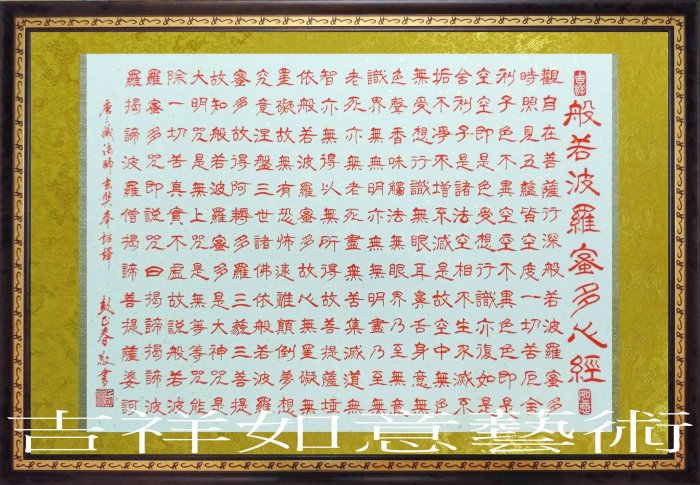 吉祥
般若波羅蜜多心經
如意
觀自在菩薩行深般若波羅蜜多
時照見五蘊皆空度一切苦厄舍
利子色不異空空不異色色即是
空空即是色受想行識亦復如是
舍利子是諸法空相不生不滅不
垢不淨不增不減是故空中無色
無受想行識無眼耳鼻舌身意無
色聲香味觸法無眼界乃至無意
識界無無明亦無無明盡乃至無
老死亦無老死盡無苦集滅道無
智亦無得以無所得故菩提薩埵
依般若波羅蜜多故心無罣礙無
罣礙故無有恐怖遠離顛倒夢想
究竟涅盤三世諸佛依般若波羅
蜜多故得阿耨多羅三藐三菩提
故知般若波羅蜜多是大神咒是
大明咒是無上咒是無等等咒能
除一切苦真實不虛故說般若波
羅蜜多咒即說咒曰揭諦揭諦波
羅揭諦波羅僧揭諦菩提薩婆訶
唐三藏法師玄奘奉詔譯 彭正春敬書
吉祥如意藝術